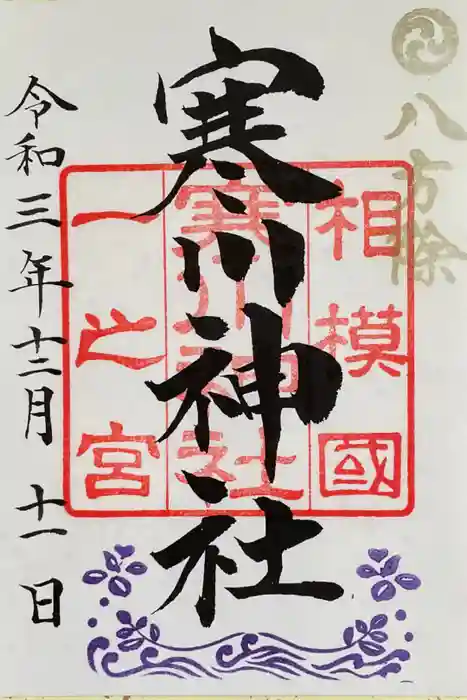 八方除
相模國
寒川神社
一之宮
寒川神社
令和三年十二月十一日